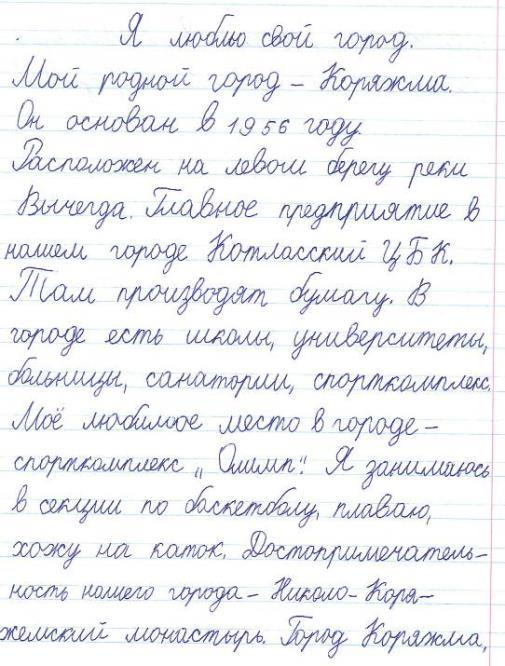 Я люблю свой город.
Мой родной город – Коряжма.
Он основан в 1956 году.
Расположен на левом берегу реки
Вычегда. Главное предприятие в
нашем городе Котласский ЦБК.
Там производят бумагу. В
городе есть школы, университеты,
больницы, санатории, спорткомплекс.
Моё любимое место в городе –
спорткомплекс „Олимп". Я занимаюсь
в секции по баскетболу, плаваю,
хожу на каток. Достопримечатель-
ность нашего города – Николо-Коря-
жемский монастырь. Город Коряжма,